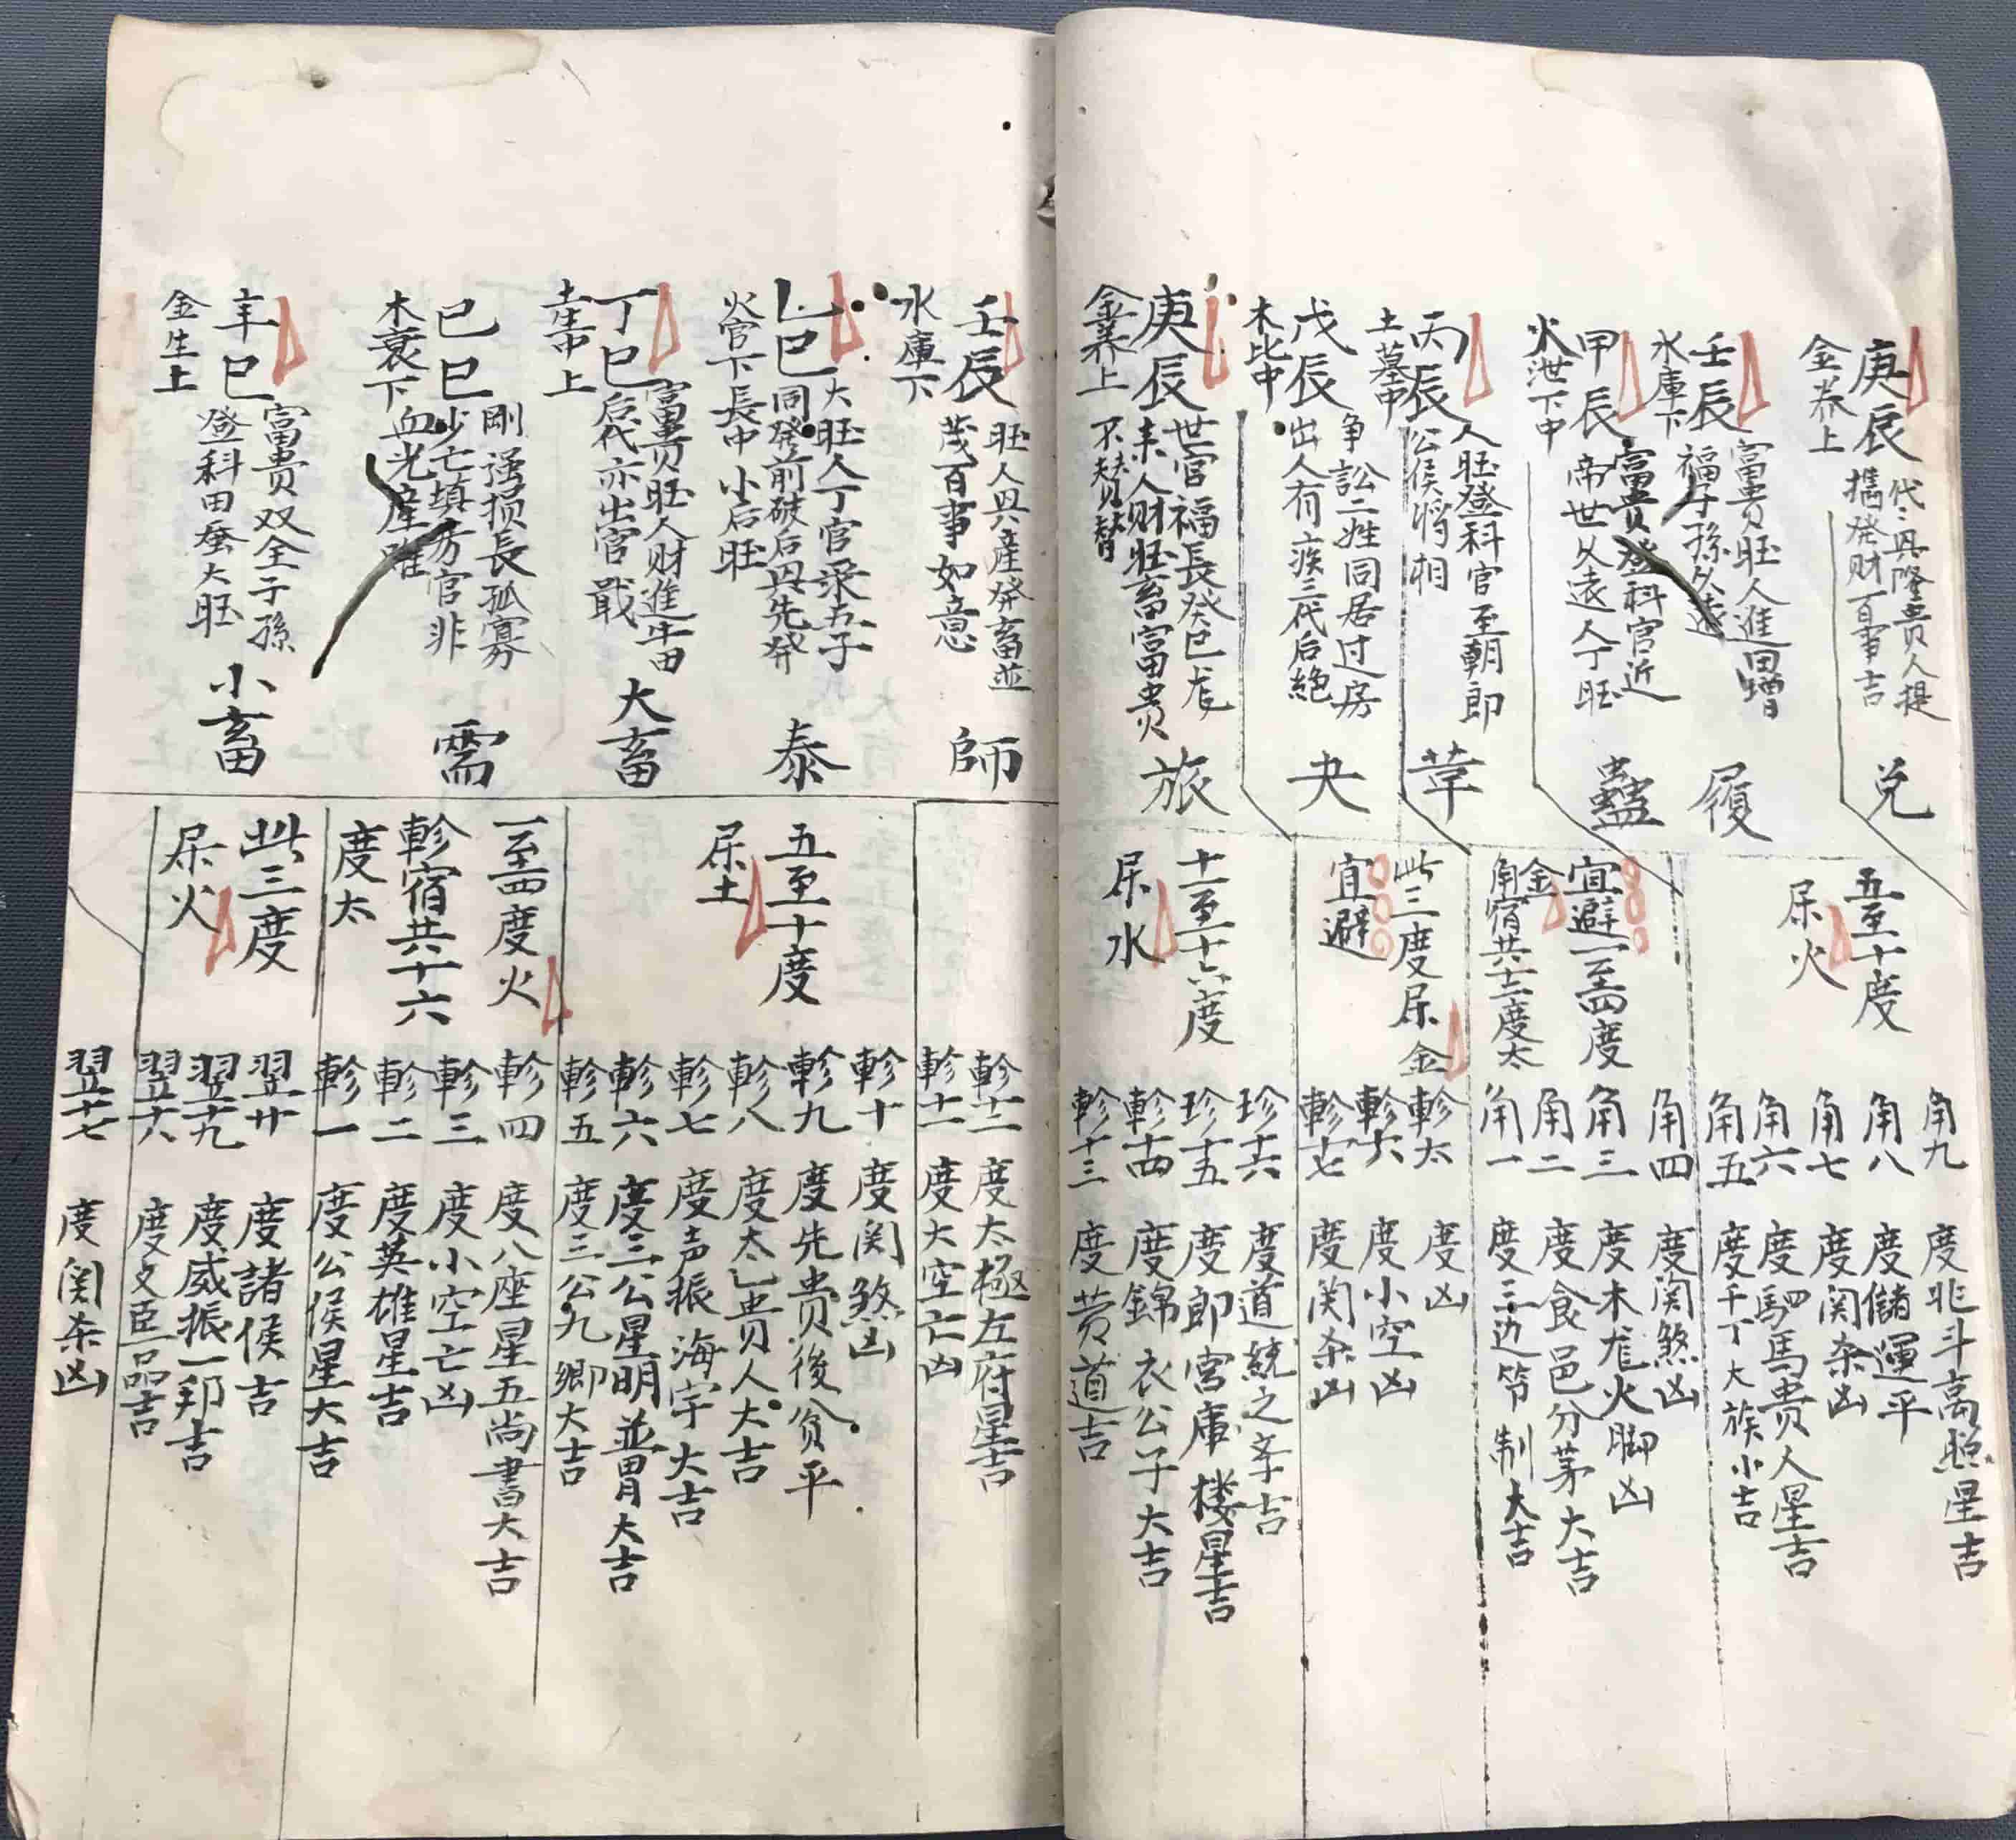 庚辰
金养上
代々具隆贵人提
攜發财百事吉
兑
壬辰
水庫下
富貴旺人進田增
福子孫久遠
履
甲辰
火泄下中
富贵登科官近
帝世久遠人丁旺
蠱
丙辰
土墓中
人旺登科官至朝郎
公侯将相
革
戊辰
木比中
争訟二姓同居过房
出人有疾三代后絶
夬
庚辰
金养上
世官福長癸巳龙
来人财旺畜富贵
不賛替
旅
五至十度
尿火
宜避一至四度
金
角宿共十二度太
此三度尿金
宜避
十一至十六度
尿水
角九度北斗高照星吉
角八度儲運平
角七度関杀凶
角六度駟馬贵人星吉
角五度千丁大族小吉
角四度関煞凶
角三度木龙火脚凶
角二度食邑分茅大吉
角一度三边节制大吉
軫太度凶
軫十六度小空凶
軫十七度関杀凶
珍十六度道統之宗吉
珍十五度郎宫庫楼星吉
軫十四度錦衣公子大吉
軫十三度黄道吉
壬辰
水庫下
旺人興產發畜並
茂百事如意
師
乙巳
火官下
大旺人丁官录五子
同發前破后興先發
長中小后旺
泰
丁巳
土生中上
富貴旺人财進牛田
后代亦出官戢
大畜
己巳
木衰下
剛强损長孤寡
少亡填房官非
血光產难
需
辛巳
金生上
富貴双全子孫
登科田蚕大旺
小畜
五至十度
尿土
一至四度火
軫宿共十六
度太
此三度
尿火
軫十二度太極左府星吉
軫十一度大空亡凶
軫十度関煞凶
軫九度先贵後貧平
軫八度太乙贵人大吉
軫七度声振海宇大吉
軫六度三公星明並胃大吉
軫五度三公九卿大吉
軫四度八座星五尚書大吉
軫三度小空亡凶
軫二度英雄星吉
軫一度公侯星大吉
翌廿度諸侯吉
翌十九度威振一邦吉
翌十八度文臣一品吉
翌十七度関杀凶